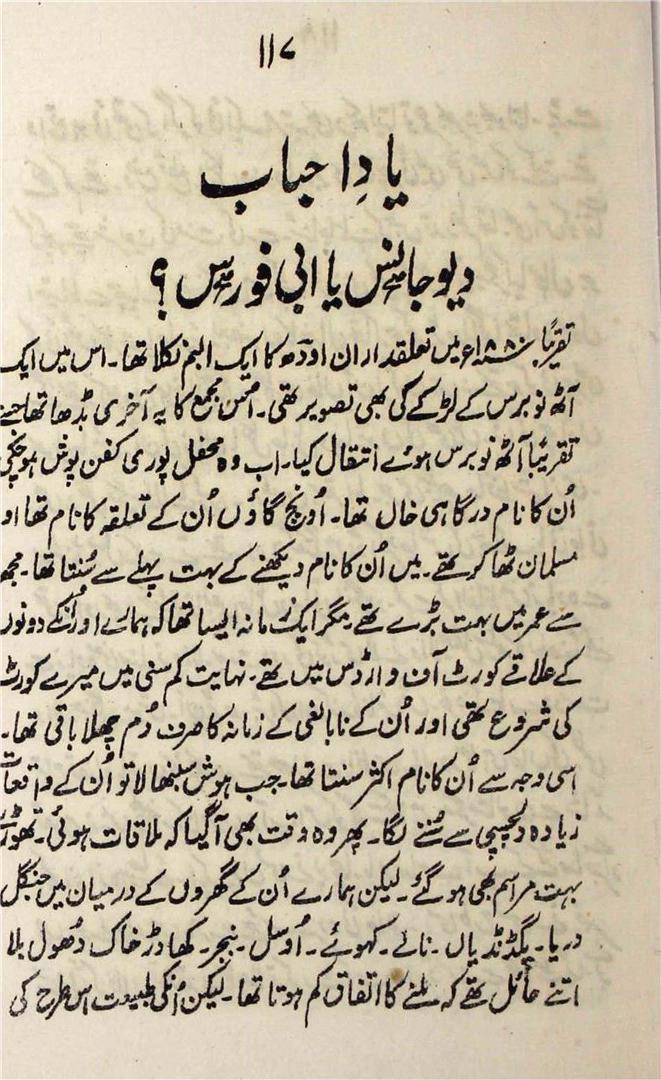 ۱۱۷
یادِ احباب
دیوجانس یا ابی فورس ؟
تقریباً ۱۸۸۰ء میں تعلقداران اودھ کا ایک البم نکلا تھا۔ اس میں ایک
آٹھ نو برس کے لڑکے کی بھی تصویر تھی۔ اس مجمع کا یہ آخری بڈھا تھا جسنے
تقریباً آٹھ نو برس ہوئے انتقال کیا۔ اب وہ محفل پوری کفن پوش ہو چکی
اُن کا نام درگاہی خاں تھا۔ اُونچ گاؤں اُن کے تعلقہ کا نام تھا او
مسلمان ٹھاکر تھے۔ میں اُن کا نام دیکھنے کے بہت پہلے سے سُنتا تھا۔ مجھ
سے عمر میں بہت بڑے تھے۔ مگر ایک زمانہ ایسا تھا کہ ہمارے اور اُنکے دونوں
کے علاقے کورٹ آف وارڈس میں تھے۔ نہایت کم سنی میں میرے کورٹ
کی شروع تھی اور اُن کے نابالغی کے زمانہ کا صرف دُم چھلا باقی تھا۔
اسی وجہ سے اُن کا نام اکثر سنتا تھا۔ جب ہوش سنبھالا تو اُن کے واقعات
زیادہ دلچسپی سے سُننے لگا۔ پھر وہ وقت بھی آگیا کہ ملاقات ہوئی۔ تھوڑے
بہت مراسم بھی ہو گئے۔ لیکن ہمارے اُن کے گھروں کے درمیان میں جنگل
دریا۔ پگڈنڈیاں۔ نالے۔ کہوئے۔ اُوسل۔ بنجر۔ کھادڑ خاک دُھول بلا
اتنے حائل تھے کہ ملنے کا اتفاق کم ہوتا تھا۔ لیکن اُنکی طبیعت اس طرح کی